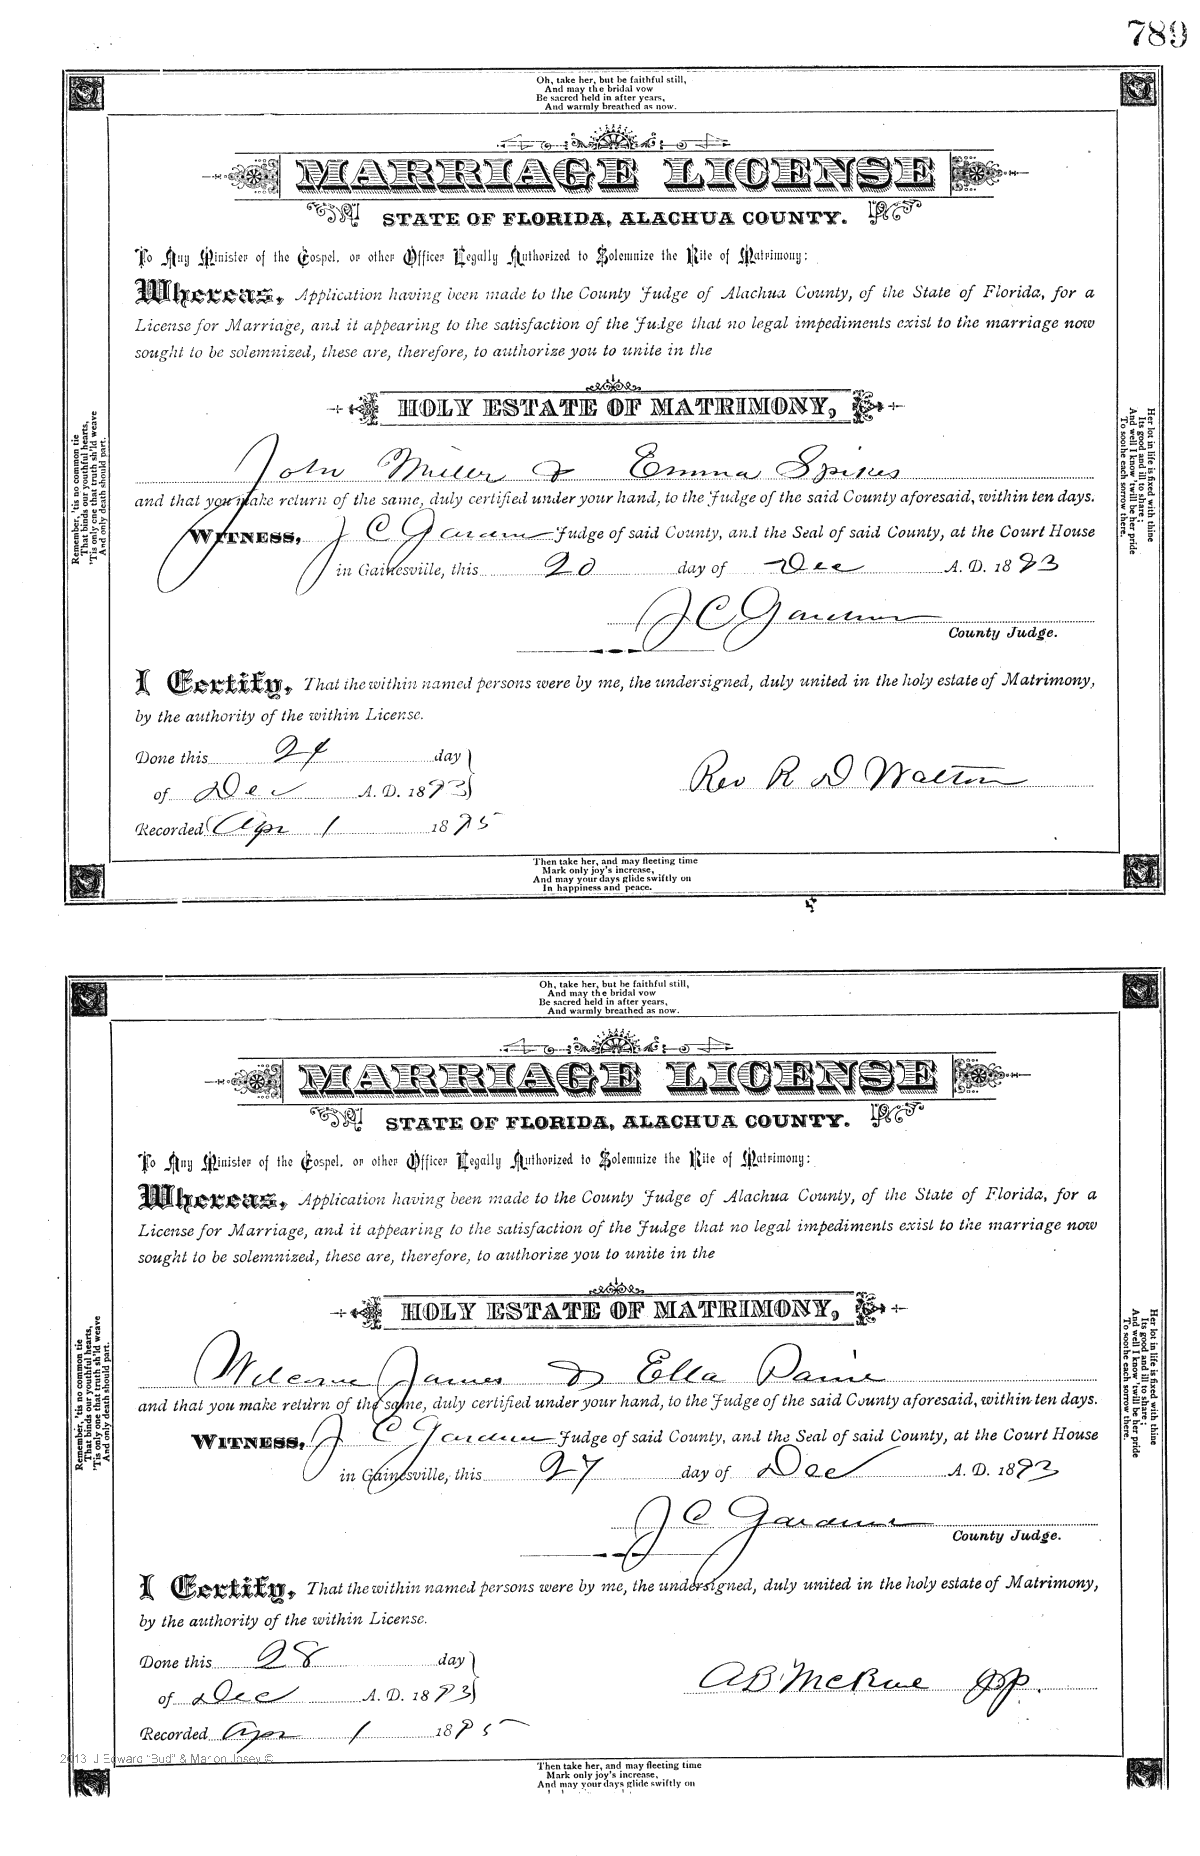 789
Oh, take her, but be faithful still,
And may the bridal vow
Be sacred held in after years,
And warmly breathed as now.
MARRIAGE LICENSE
STATE OF FLORIDA, ALACHUA COUNTY.
To Any Minister of the Gospel, or other Officer Legally Authorized to Solemnize the Rite of Matrimony:
Whereas, Application having been made to the County Judge of Alachua County, of the State of Florida, for a
License for Marriage, and it appearing to the satisfaction of the Judge that no legal impediments exist to the marriage now
sought to be solemnized, these are, therefore, to authorize you to unite in the
HOLY ESTATE OF MATRIMONY,
John Miller & Emma Spikes
and that you make return of the same, duly certified under your hand, to the Judge of the said County aforesaid, within ten days.
WITNESS, J C Gardner Judge of said County, and the Seal of said County, at the Court House
in Gainesville, this 20 day of Dec A. D. 1893
J C Gardner
County Judge.
I Certify, That the within named persons were by me, the undersigned, duly united in the holy estate of Matrimony,
by the authority of the within License.
Done this 24 day
of Dec A. D. 1893
Rev R D Walton
Recorded Apr 1 1895
Remember, 'tis no common tie
That binds your youthful hearts,
'Tis only one that truth sh'ld weave
And only death should part.
Her lot in life is fixed with thine
Its good and ill to share;
And well I know 'twill be her pride
To soothe each sorrow there.
Then take her, and may fleeting time
Mark only joy's increase,
And may your days glide swiftly on
In happiness and peace.
Oh, take her, but be faithful still,
And may the bridal vow
Be sacred held in after years,
And warmly breathed as now.
MARRIAGE LICENSE
STATE OF FLORIDA, ALACHUA COUNTY.
To Any Minister of the Gospel, or other Officer Legally Authorized to Solemnize the Rite of Matrimony:
Whereas, Application having been made to the County Judge of Alachua County, of the State of Florida, for a
License for Marriage, and it appearing to the satisfaction of the Judge that no legal impediments exist to the marriage now
sought to be solemnized, these are, therefore, to authorize you to unite in the
HOLY ESTATE OF MATRIMONY,
Welcome James & Ella Paine
and that you make return of the same, duly certified under your hand, to the Judge of the said County aforesaid, within ten days.
WITNESS, J C Gardner Judge of said County, and the Seal of said County, at the Court House
in Gainesville, this 27 day of Dec A. D. 1893
J C Gardner
County Judge.
I Certify, That the within named persons were by me, the undersigned, duly united in the holy estate of Matrimony,
by the authority of the within License.
Done this 28 day
of Dec A. D. 1893
A B McRae JP.
Recorded Apr 1 1895
Remember, 'tis no common tie
That binds your youthful hearts,
'Tis only one that truth sh'ld weave
And only death should part.
Her lot in life is fixed with thine
Its good and ill to share;
And well I know 'twill be her pride
To soothe each sorrow there.
2013 J Edward "Bud" & Marion Josey ©
Then take her, and may fleeting time
Mark only joy's increase,
And may your days glide swiftly on